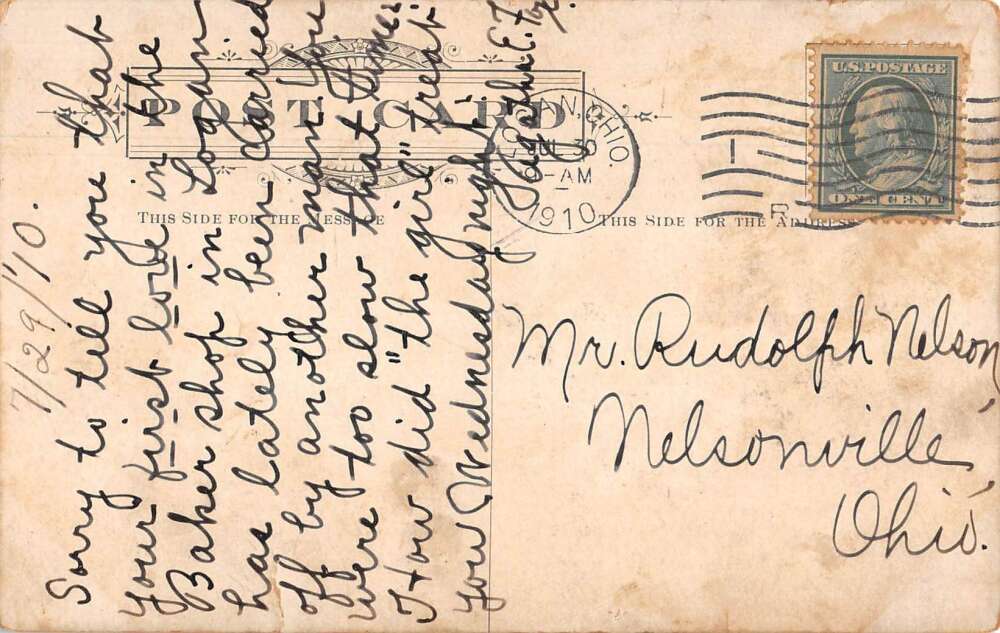 POST CARD
THIS SIDE FOR THE MESSAGE
THIS SIDE FOR THE ADDRESS
OHIO.
30
-AM
1910
U.S. POSTAGE
ONE CENT
7/29/'10.
Sorry to tell you that
your first love in the
Baker shop in Logan
has lately been carried
off by another man. You
were too slow that time.
How did "the girl" treat
you Wednesday night.
Mr. Rudolph Nelson
Nelsonville,
Ohio.